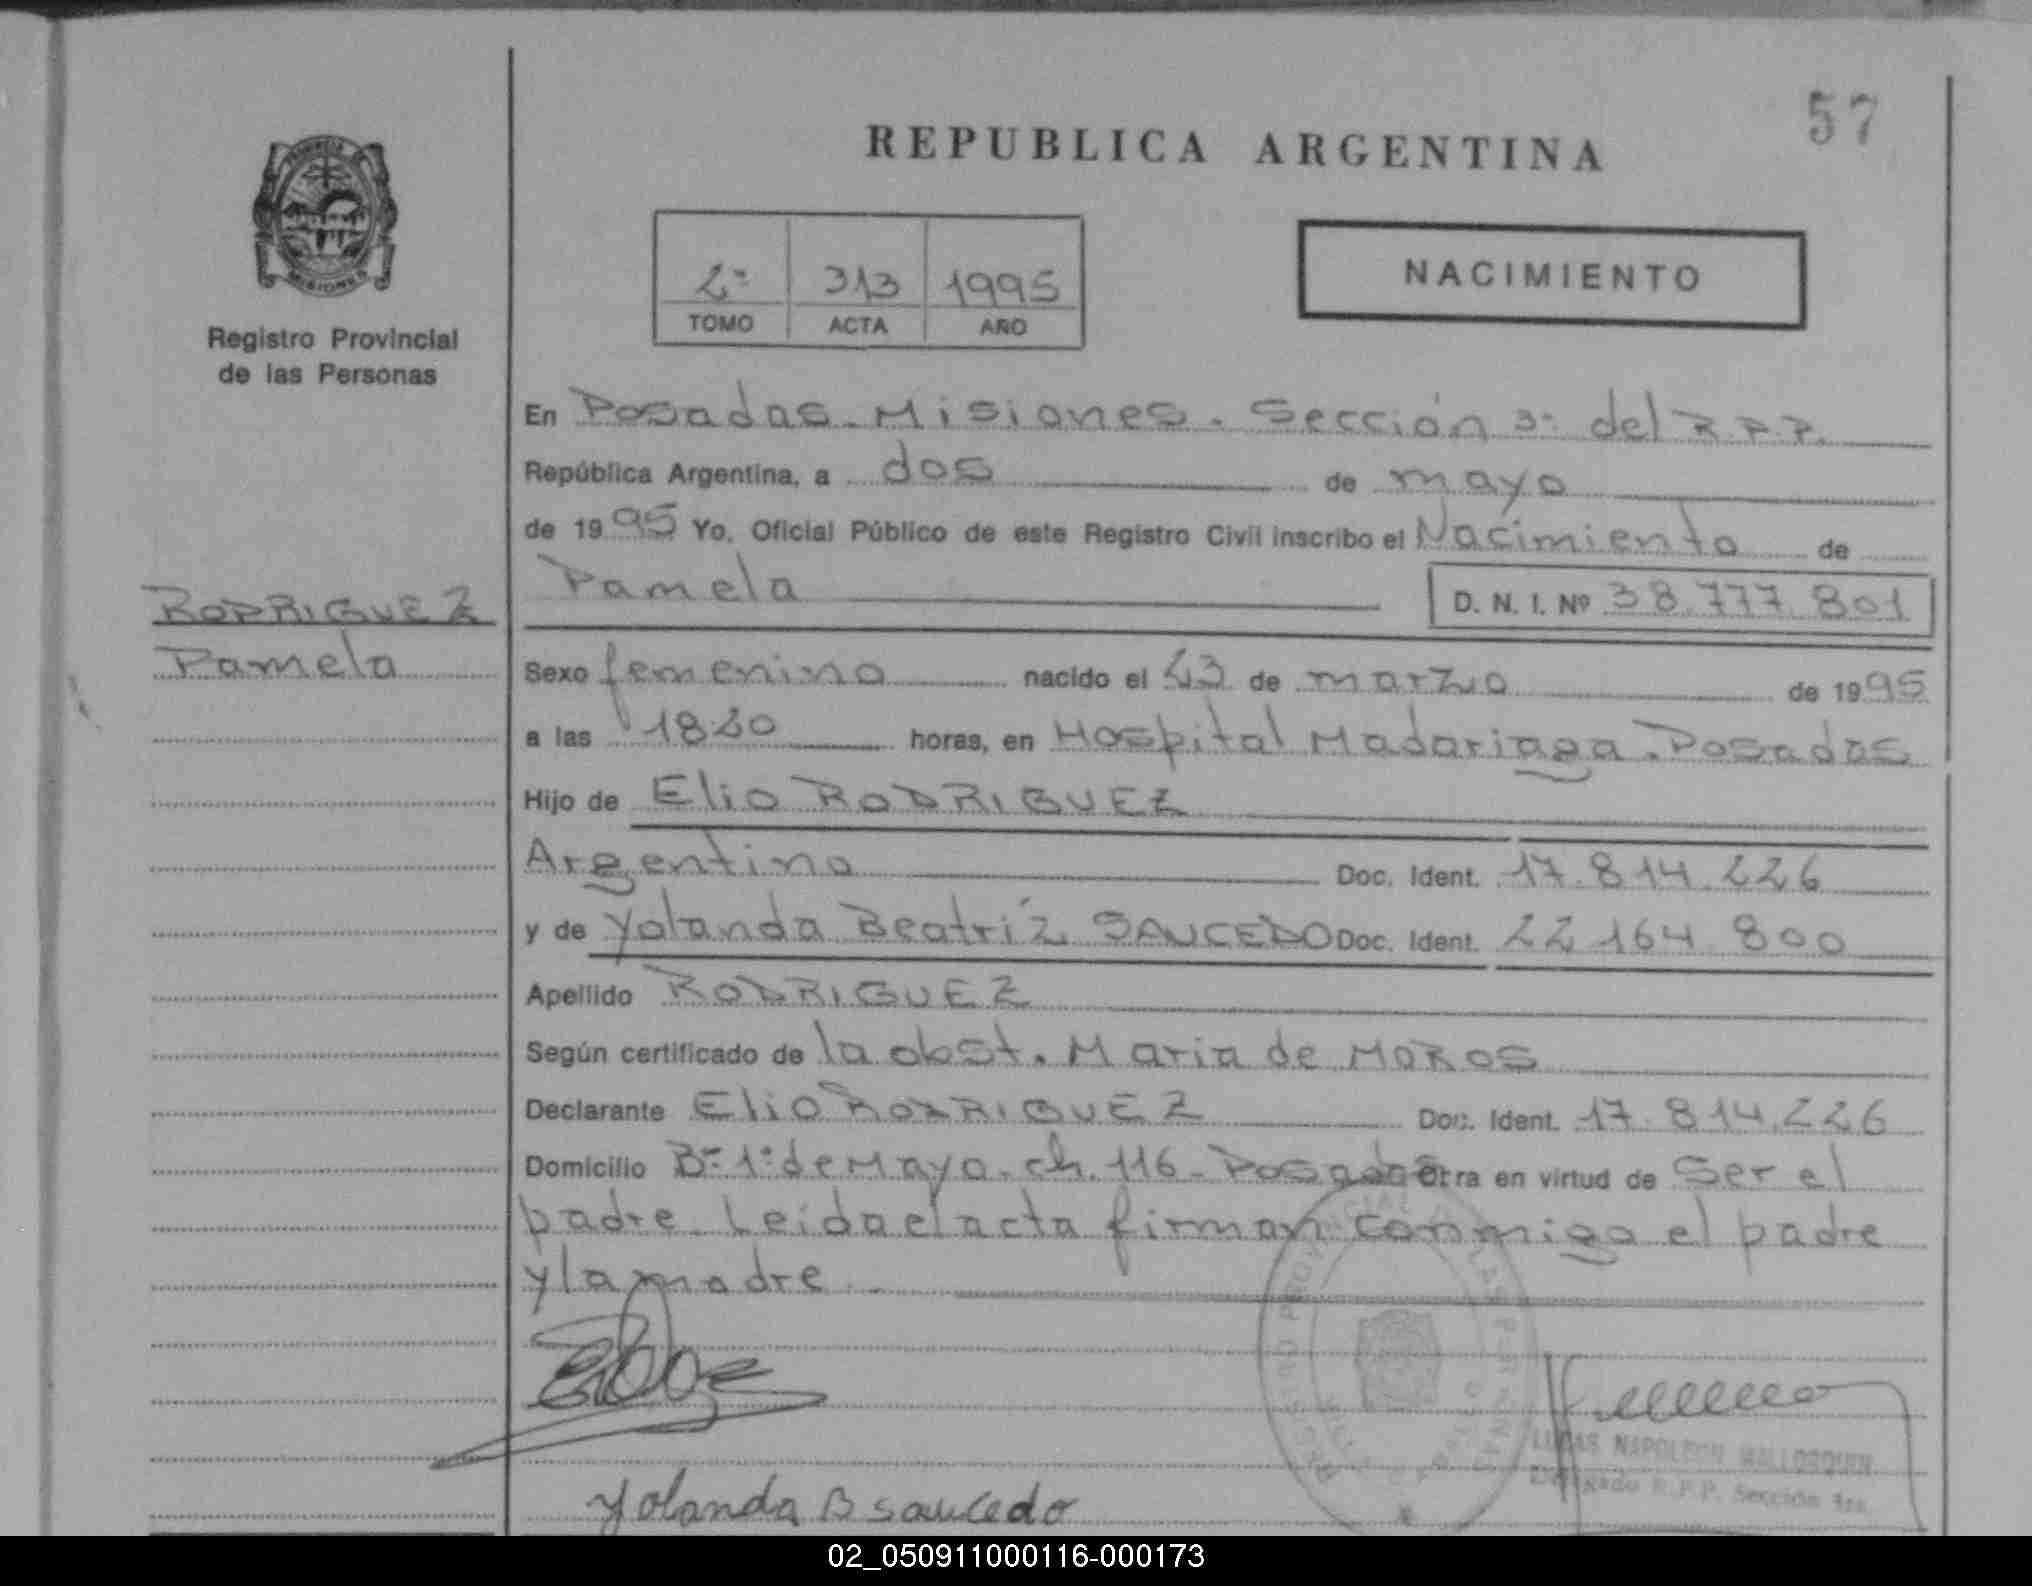 57
REPUBLICA ARGENTINA
PROVINCIA DE
MISIONES
2º 313 1995
TOMO ACTA AÑO
NACIMIENTO
Registro Provincial
de las Personas
En Posadas. Misiones. Sección 3º del R.P.P.
República Argentina, a dos de mayo
de 1995 Yo, Oficial Público de este Registro Civil inscribo el Nacimiento de
Pamela D. N. I. Nº 38.777.801
RODRIGUEZ
Pamela
Sexo femenino nacido el 23 de marzo de 1995
a las 18:20 horas, en Hospital Madariaga. Posadas
Hijo de Elio RODRIGUEZ
Argentino Doc. Ident. 17.814.226
y de Yolanda Beatríz SAUCEDO Doc. Ident. 22 164 800
Apellido RODRIGUEZ
Según certificado de la obst. Maria de MOROS
Declarante Elio RODRIGUEZ Doc. Ident. 17.814.226
Domicilio Bº 1º de Mayo. ch. 116. Posadas Obra en virtud de ser el
padre. Leida el acta firman conmigo el padre
y la madre.
LUCAS NAPOLEON MALLORQUIN
Delegado R.P.P. Sección 3ra.
Yolanda B saucedo
02_050911000116-000173